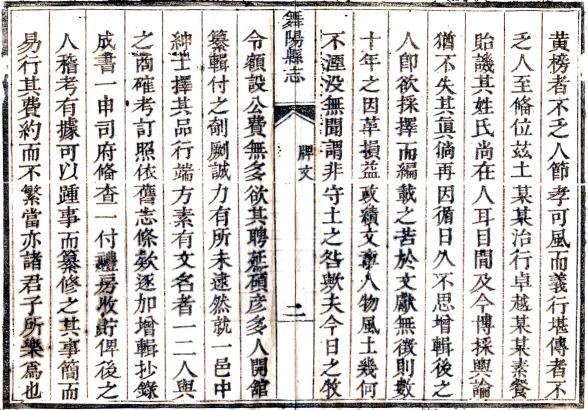 黃榜者不乏人節孝可風而義行堪傳者不
乏人至偹位茲土某某治行卓越某某素餐
貽譏其姓氏尚在人耳目間及今博採輿論
猶不失其真倘再因循日久不思增輯後之
人卽欲採擇而編載之苦於文獻無徵則數
十年之因革損益政績文章人物風土幾何
不湮没無聞謂非守土之咎歟夫今日之牧
舞陽縣志
牌文
二
令額設公費無多欲其聘延碩彦多人開舘
纂輯付之剞劂誠力有所未逮然就一邑中
紳士擇其品行端方素有文名者一二人與
之商確考訂照依舊志條欵逐加增輯抄錄
成書一申司府偹查一付禮房收貯俾後之
人稽考有據可以踵事而纂修之其事簡而
易行其費約而不繁當亦諸君子所樂爲也